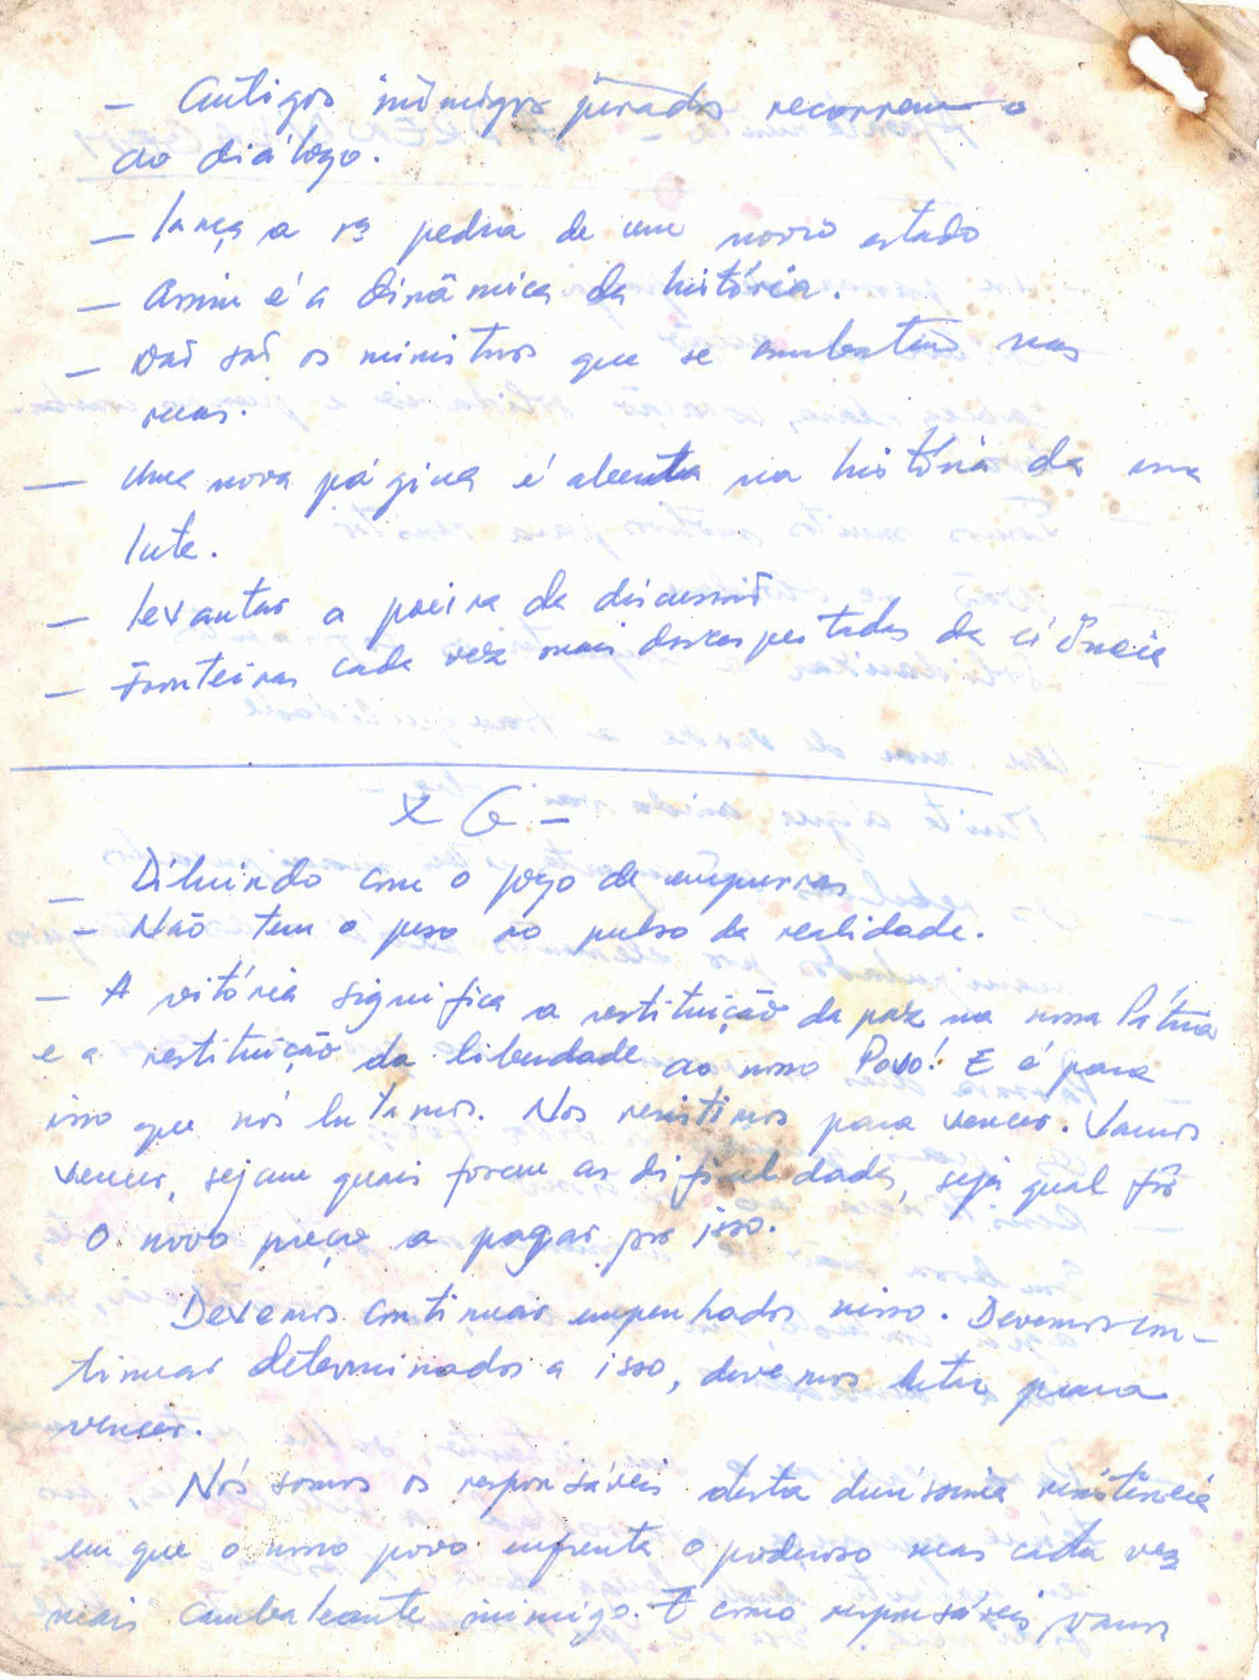 - Antigos inimigos jurados recorrem o
ao diálogo.
- lança a 1ª pedra de um novo estado
- Assim é a dinâmica da história.
- Daí saí os ministros que se embatem nas
ruas.
- Uma nova página é aberta na história da sua
luta.
- levantar a poeira da discussão
- Fronteiras cada vez mais da ciência
X G -
- Diluindo com o jogo de empurras
- Não tem o peso no pulso da realidade.
- A vitória significa a restituição da paz na nossa Pátria
e a restituição da liberdade ao nosso Povo! E é para
isso que nós lutamos. Nos resistimos para vencer. Vamos
vencer, sejam quais forem as dificuldades, seja qual fôr
o novo preço a pagar por isso.
Devemos continuar empenhados nisso. Devemos con-
tinuar determinados a isso, devemos lutar para
vencer.
Nós somos os responsáveis desta duríssima resistência
em que o nosso povo enfrenta o poderoso mas cada vez
mais cambaleante inimigo. E como responsáveis vamos